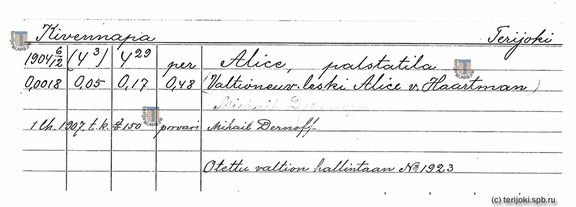 Kivennapa Terijoki
1904 6/2 (4³) 4²⁹ per Alice, palstatila
0,0018 0,05 0,17 0,48 (Valtioneuv. leski Alice v. Haartman)
1 Ch. 1907. t.k. § 150 porvari Mihail Dernoff
Otettu valtion hallintaan № 1923
(c) terijoki.spb.ru